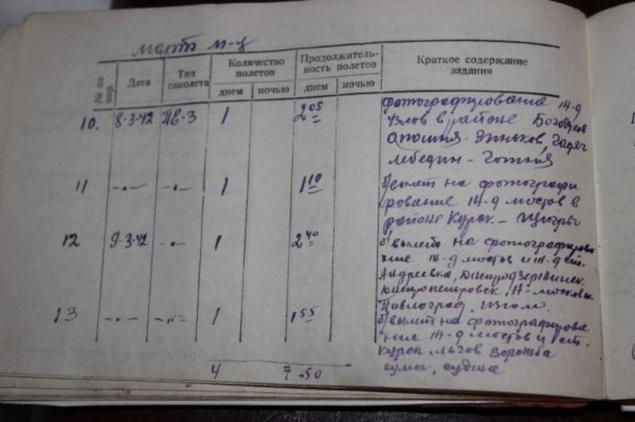 март м-ц
№ по пор. Дата Тип самолета Количество полетов Продолжительность полетов Краткое содержание задания
днем ночью днем ночью
10. 8-3-42 ПЕ-3 1 2 05 фотографирование Ж-д
узлов в районе Богодухов
Опошня. Зиньков, Гадяч
лебедин - Готня
11 -"- -"- 1 1 10 б/вылет на фотографи
рование Ж-д мостов в
районе Курск - Щигры
12 9-3-42 -"- 1 2 40 б/вылет на фотографирова
ние Ж-д мостов и Ж-д ст.
Андреевка, Днепродзержинск,
Днепропетровск, Н-московск
Павлоград, Изюм.
13 -"- -"- 1 1 55 б/вылет на фотографирова
ние Ж-д мостов и ст.
Курск, Льгов Ворожба
сумы, суджа
4 7-50